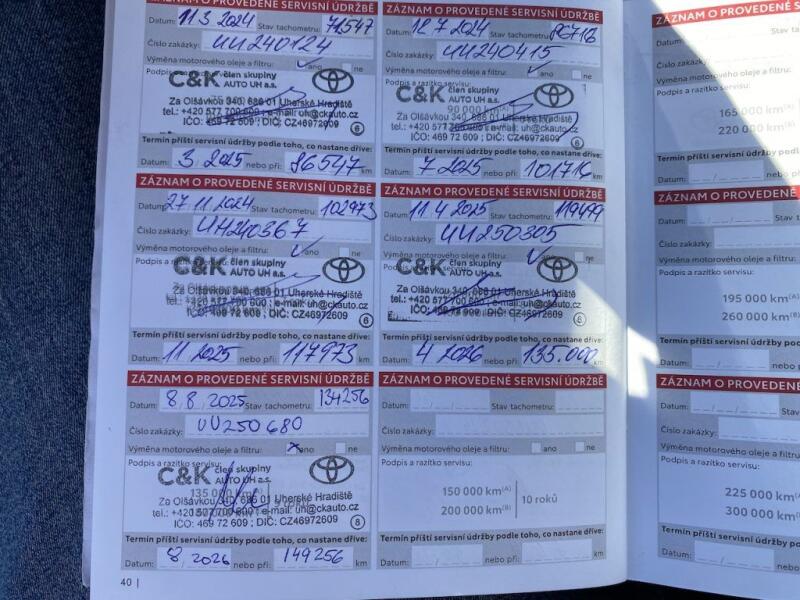 ZÁZNAM O PROVEDENÉ SERVISNÍ ÚDRŽBĚ
Datum: 11.3 2024 Stav tachometru: 71547
Číslo zakázky: UU240124
Výměna motorového oleje a filtru: ano ne
Podpis a
C&K člen skupiny
AUTO UH a.s.
Za Olšávkou 340, 686 01 Uherské Hradiště
tel.: +420 577 700 600 ; e-mail: uh@ckauto.cz
IČO: 469 72 609 ; DIČ: CZ46972609 6
Termín příští servisní údržby podle toho, co nastane dříve:
Datum: 3 2025 nebo při: 86547 km
ZÁZNAM O PROVEDENÉ SERVISNÍ ÚDRŽBĚ
Datum: 12.7 2024 Stav tachometru: 86716
Číslo zakázky: UU240415
Výměna motorového oleje a filtru: ano ne
Podpis a razítko servisu:
C&K člen skupiny
AUTO UH a.s.
90 000 km(A)
Za Olšávkou 340, 686 01 Uherské Hradiště
tel.: +420 577 700 600 ; e-mail: uh@ckauto.cz
IČO: 469 72 609 ; DIČ: CZ46972609 6
Termín příští servisní údržby podle toho, co nastane dříve:
Datum: 7 2025 nebo při: 101716 km
ZÁZNAM O PROVEDENÉ SERVISNÍ ÚDRŽBĚ
Datum: 27 11 2024 Stav tachometru: 102973
Číslo zakázky: UH240367
Výměna motorového oleje a filtru: ano ne
Podpis a razítko servisu:
C&K člen skupiny
AUTO UH a.s.
Za Olšávkou 340, 686 01 Uherské Hradiště
tel.: +420 577 700 600 ; e-mail: uh@ckauto.cz
IČO: 469 72 609 ; DIČ: CZ46972609 6
Termín příští servisní údržby podle toho, co nastane dříve:
Datum: 11 2025 nebo při: 117973 km
ZÁZNAM O PROVEDENÉ SERVISNÍ ÚDRŽBĚ
Datum: 11.4 2025 Stav tachometru: 119499
Číslo zakázky: UU250305
Výměna motorového oleje a filtru: ano ne
Podpis a razítko servisu:
C&K člen skupiny
AUTO UH a.s.
Za Olšávkou 340, 686 01 Uherské Hradiště
tel.: +420 577 700 600 ; e-mail: uh@ckauto.cz
IČO: 469 72 609 ; DIČ: CZ46972609 6
Termín příští servisní údržby podle toho, co nastane dříve:
Datum: 4 2026 nebo při: 135.000 km
ZÁZNAM O PROVEDENÉ SERVISNÍ ÚDRŽBĚ
Datum: 8.8.2025 Stav tachometru: 134256
Číslo zakázky: UU250680
Výměna motorového oleje a filtru: ano ne
Podpis a razítko servisu:
C&K člen skupiny
AUTO UH a.s.
135 000 km
Za Olšávkou 340, 686 01 Uherské Hradiště
tel.: +420 577 700 600 ; e-mail: uh@ckauto.cz
IČO: 469 72 609 ; DIČ: CZ46972609 8
Termín příští servisní údržby podle toho, co nastane dříve:
Datum: 8/2026 nebo při: 149256 km
ZÁZNAM O PROVEDENÉ SERVISNÍ ÚDRŽBĚ
Datum: Stav tachometru:
Číslo zakázky:
Výměna motorového oleje a filtru: ano ne
Podpis a razítko servisu:
150 000 km(A)
200 000 km(B) 10 roků
Termín příští servisní údržby podle toho, co nastane dříve:
Datum: nebo při: km
40 |
ZÁZNAM O PROVEDENÉ
Datum:
Číslo zakázky:
Výměna motorového oleje
Podpis a razítko servisu:
165 000
220 0
Termín příští servisní údržby
Datum:
ZÁZNAM O PROVEDENÉ
Datum: Sta
Číslo zakázky:
Výměna motorového oleje
Podpis a razítko servisu:
195 000 km(A)
260 000 km(B)
Termín příští servisní údržby
Datum: nebo
ZÁZNAM O PROVEDENÉ
Datum: Sta
Číslo zakázky:
Výměna motorového oleje
Podpis a razítko servisu:
225 000 km(A)
300 000 km(B)
Termín příští servisní údržby
Datum: neb